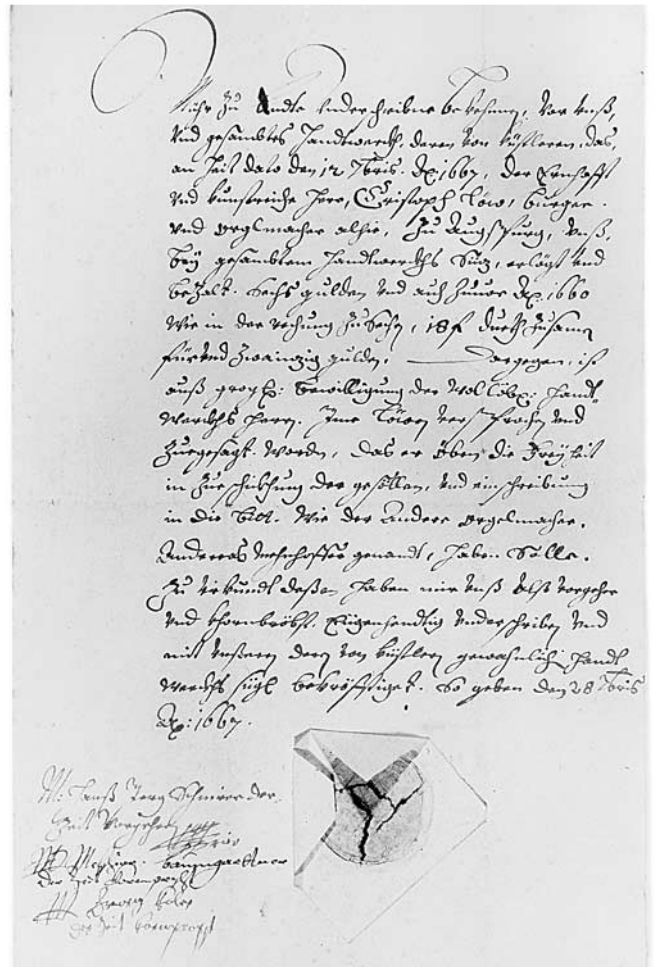 Wihr zu Endte Underschribne bekhennen, vor unß,
Und gesambtes Handtwerckh, deren von Küstleren, das,
an Heit dato den 12 7bris. Ao 1667, der Ernhafft
Und kunstreiche Herr, Christoph Löw, burger.
Und orglmacher alhie, Zu Augspurg, Unß,
bey gesambtem Handtwerckhs Siz, erlögt Und
bezalt. Sechs gulden Und auch Zuvor Ao. 1660
Wie in der rechnung Zu Sechen, 18 f dueth Zusamen
für Und Zwainzig gulden, Dargegen, ist
auß großg: bewilligung der Wolloble: Handt-
werckhs Herrn. Ime Löwen versprochen Und
Zuegesagt. Worden, Das er Öben die Freyheit
in Zueschickhung der gesöllen, Und einschreibung
in die Biet. Wie der Andere orgelmacher.
Andereas genandt, Haben Solle.
Zu Urkundt deßen Haben mir Unß Alß vorgeher
Und khornbröbst. Eigenhendtig Underschriben Und
mit Unßeren deren von Küstlern gewohnlichen Handt
werckhs sigl bekröfftiget. So geben den 28 7bris
Ao: 1667.
M: Hanß Jerg Schnirer der
Zeit Vorgeher
Melchior baumgartner
der Zeit
Georg
der Zeit kornpropst